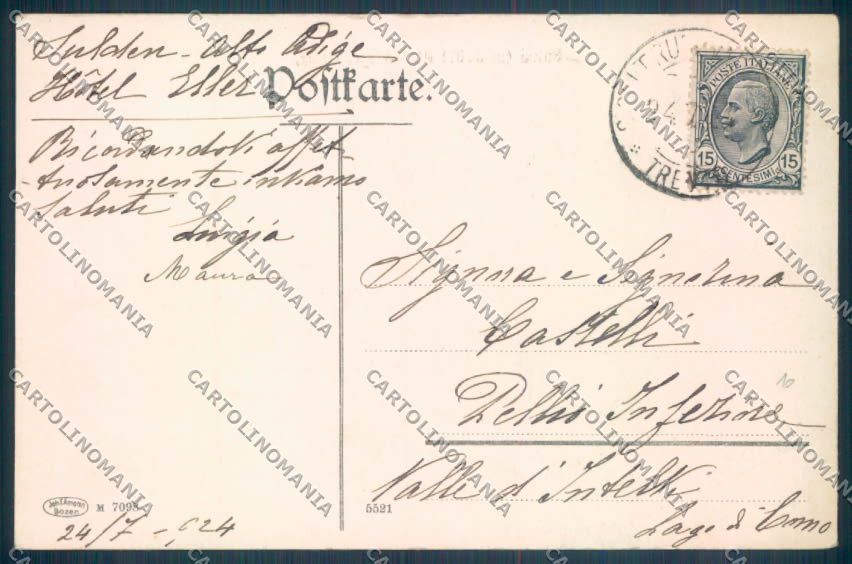 Sulden - Alto Adige
Hôtel Eller
Postkarte.
Ricordandoti affet-
tuosamente inviamo
Saluti
Luigia
Maura
POSTE ITALIANE
15 15
CENTESIMI
TREN
Signora e Signorina
Castelli
Pellio Inferiore
Valle d'Intelvi
Lago di Como
Bozen
M 7098
5521
24/7 - 924
10
CARTOLINOMANIA